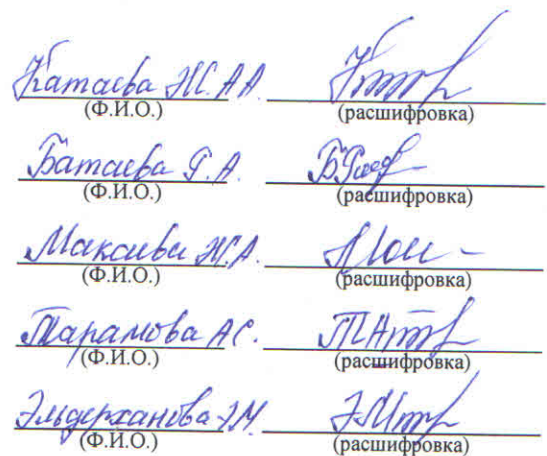 Катаева Ж.А.А.
(Ф.И.О.) (расшифровка)
Батаева Г.А.
(Ф.И.О.) (расшифровка)
Макаева Ж.А.
(Ф.И.О.) (расшифровка)
Тарамова А.С.
(Ф.И.О.) (расшифровка)
Эльдерханова Э.М.
(Ф.И.О.) (расшифровка)